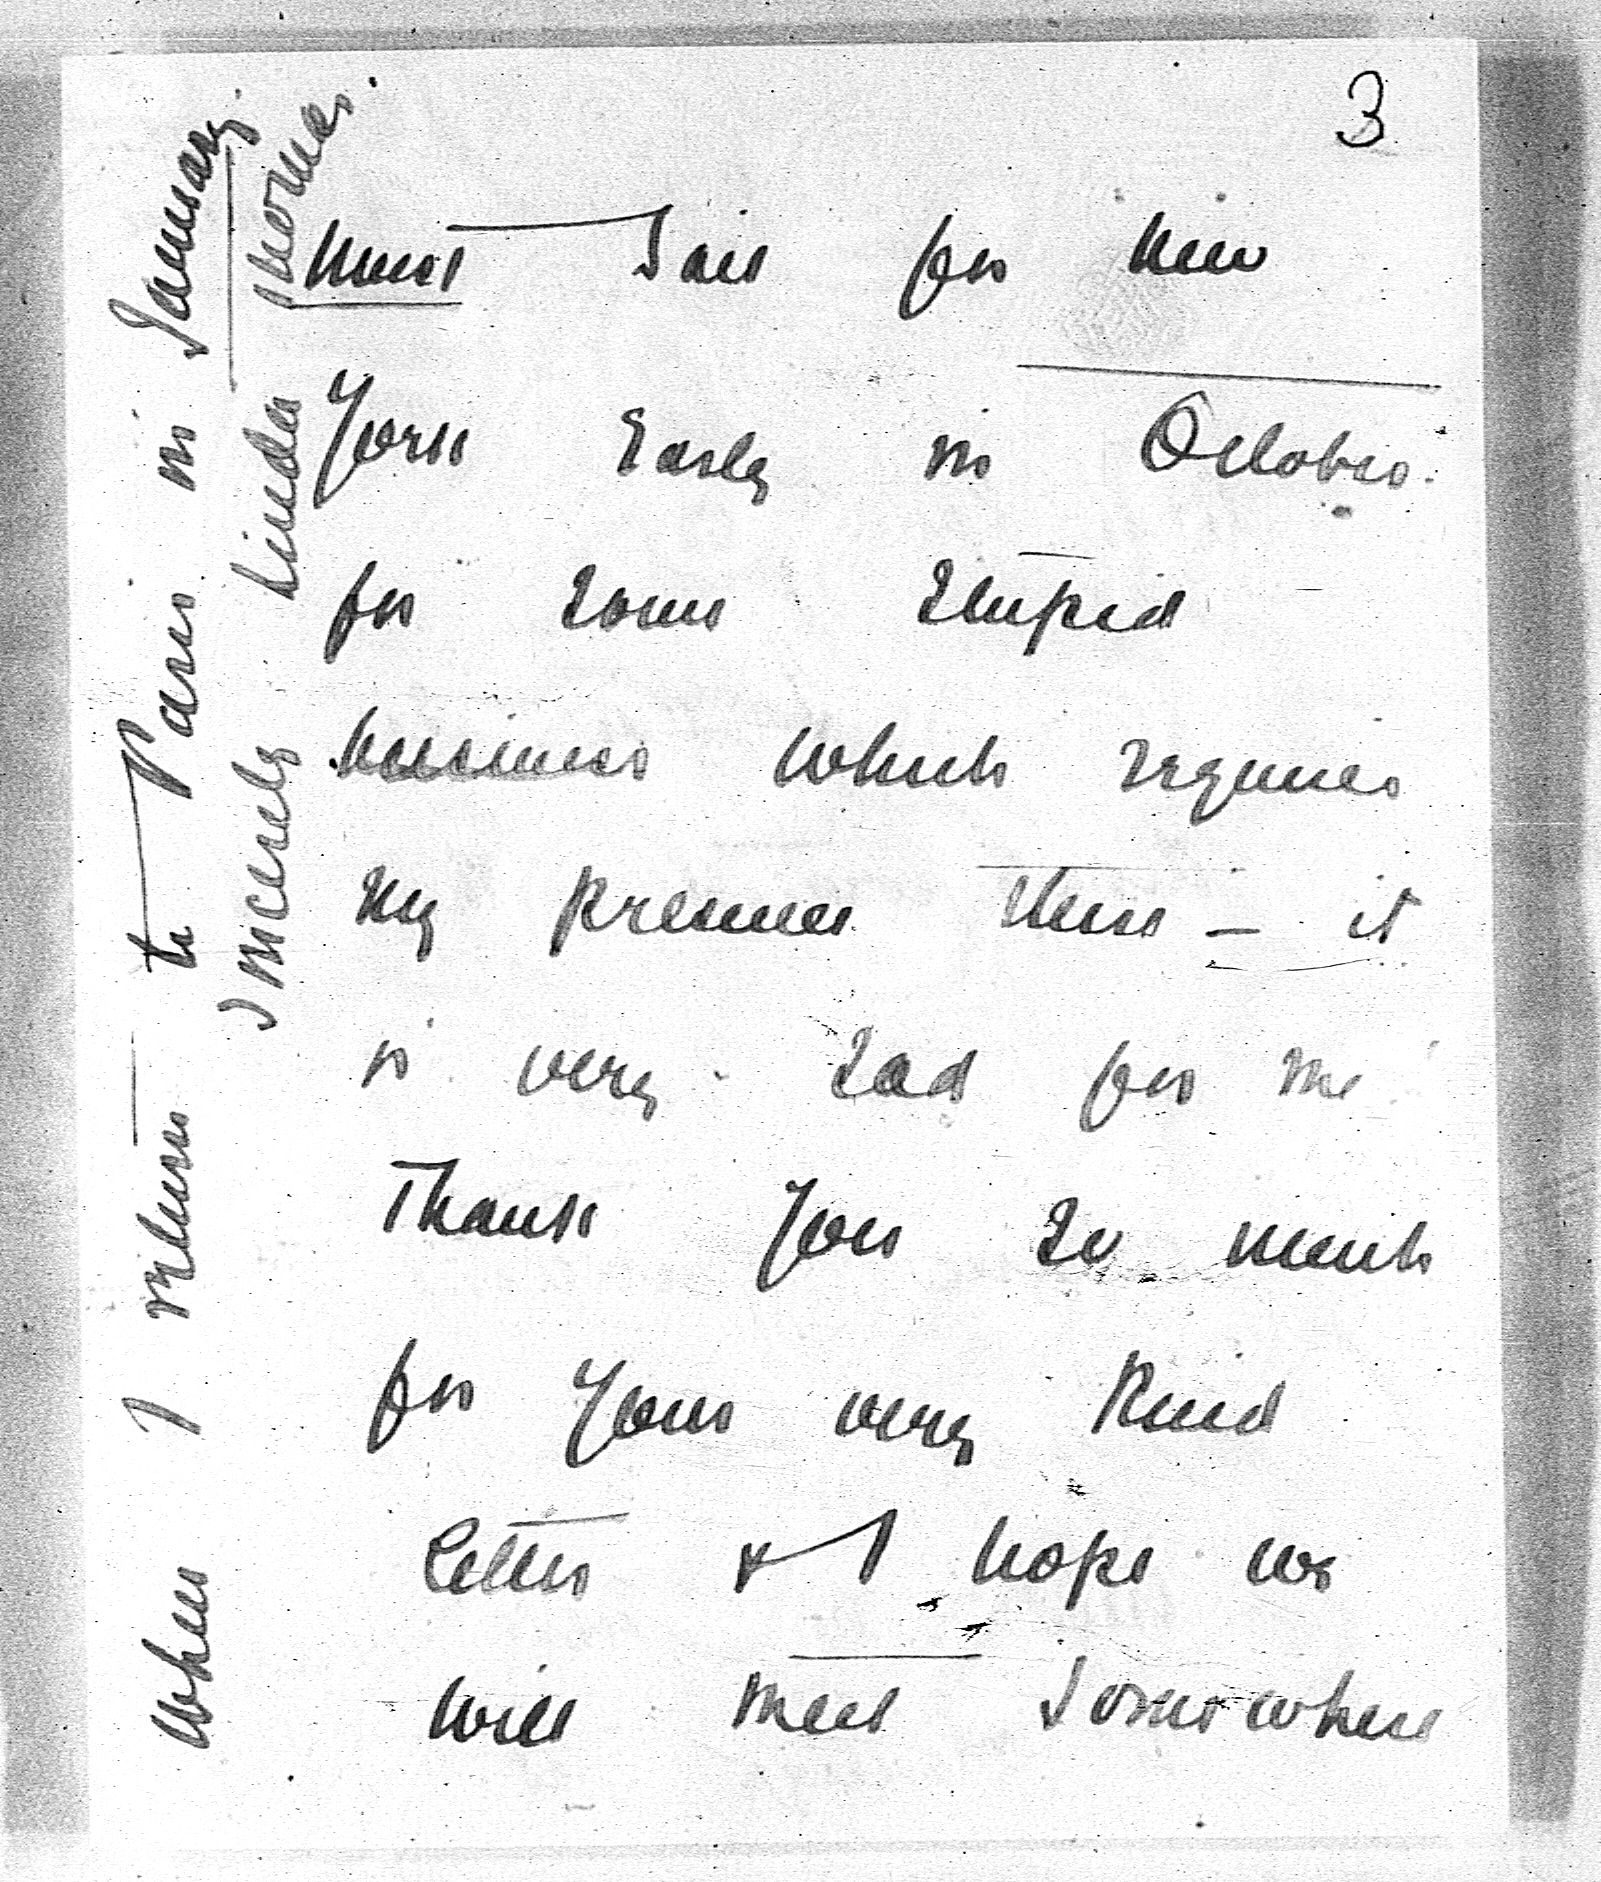 3
must Sail for New
York Early in October
for Some Stupid
business which requires
my presence there — it
is very Sad for me
Thank you So much
for your very Kind
letter & I hope we
will meet Somewhere
when I return to Paris in January.
Sincerely Linda Thomas.